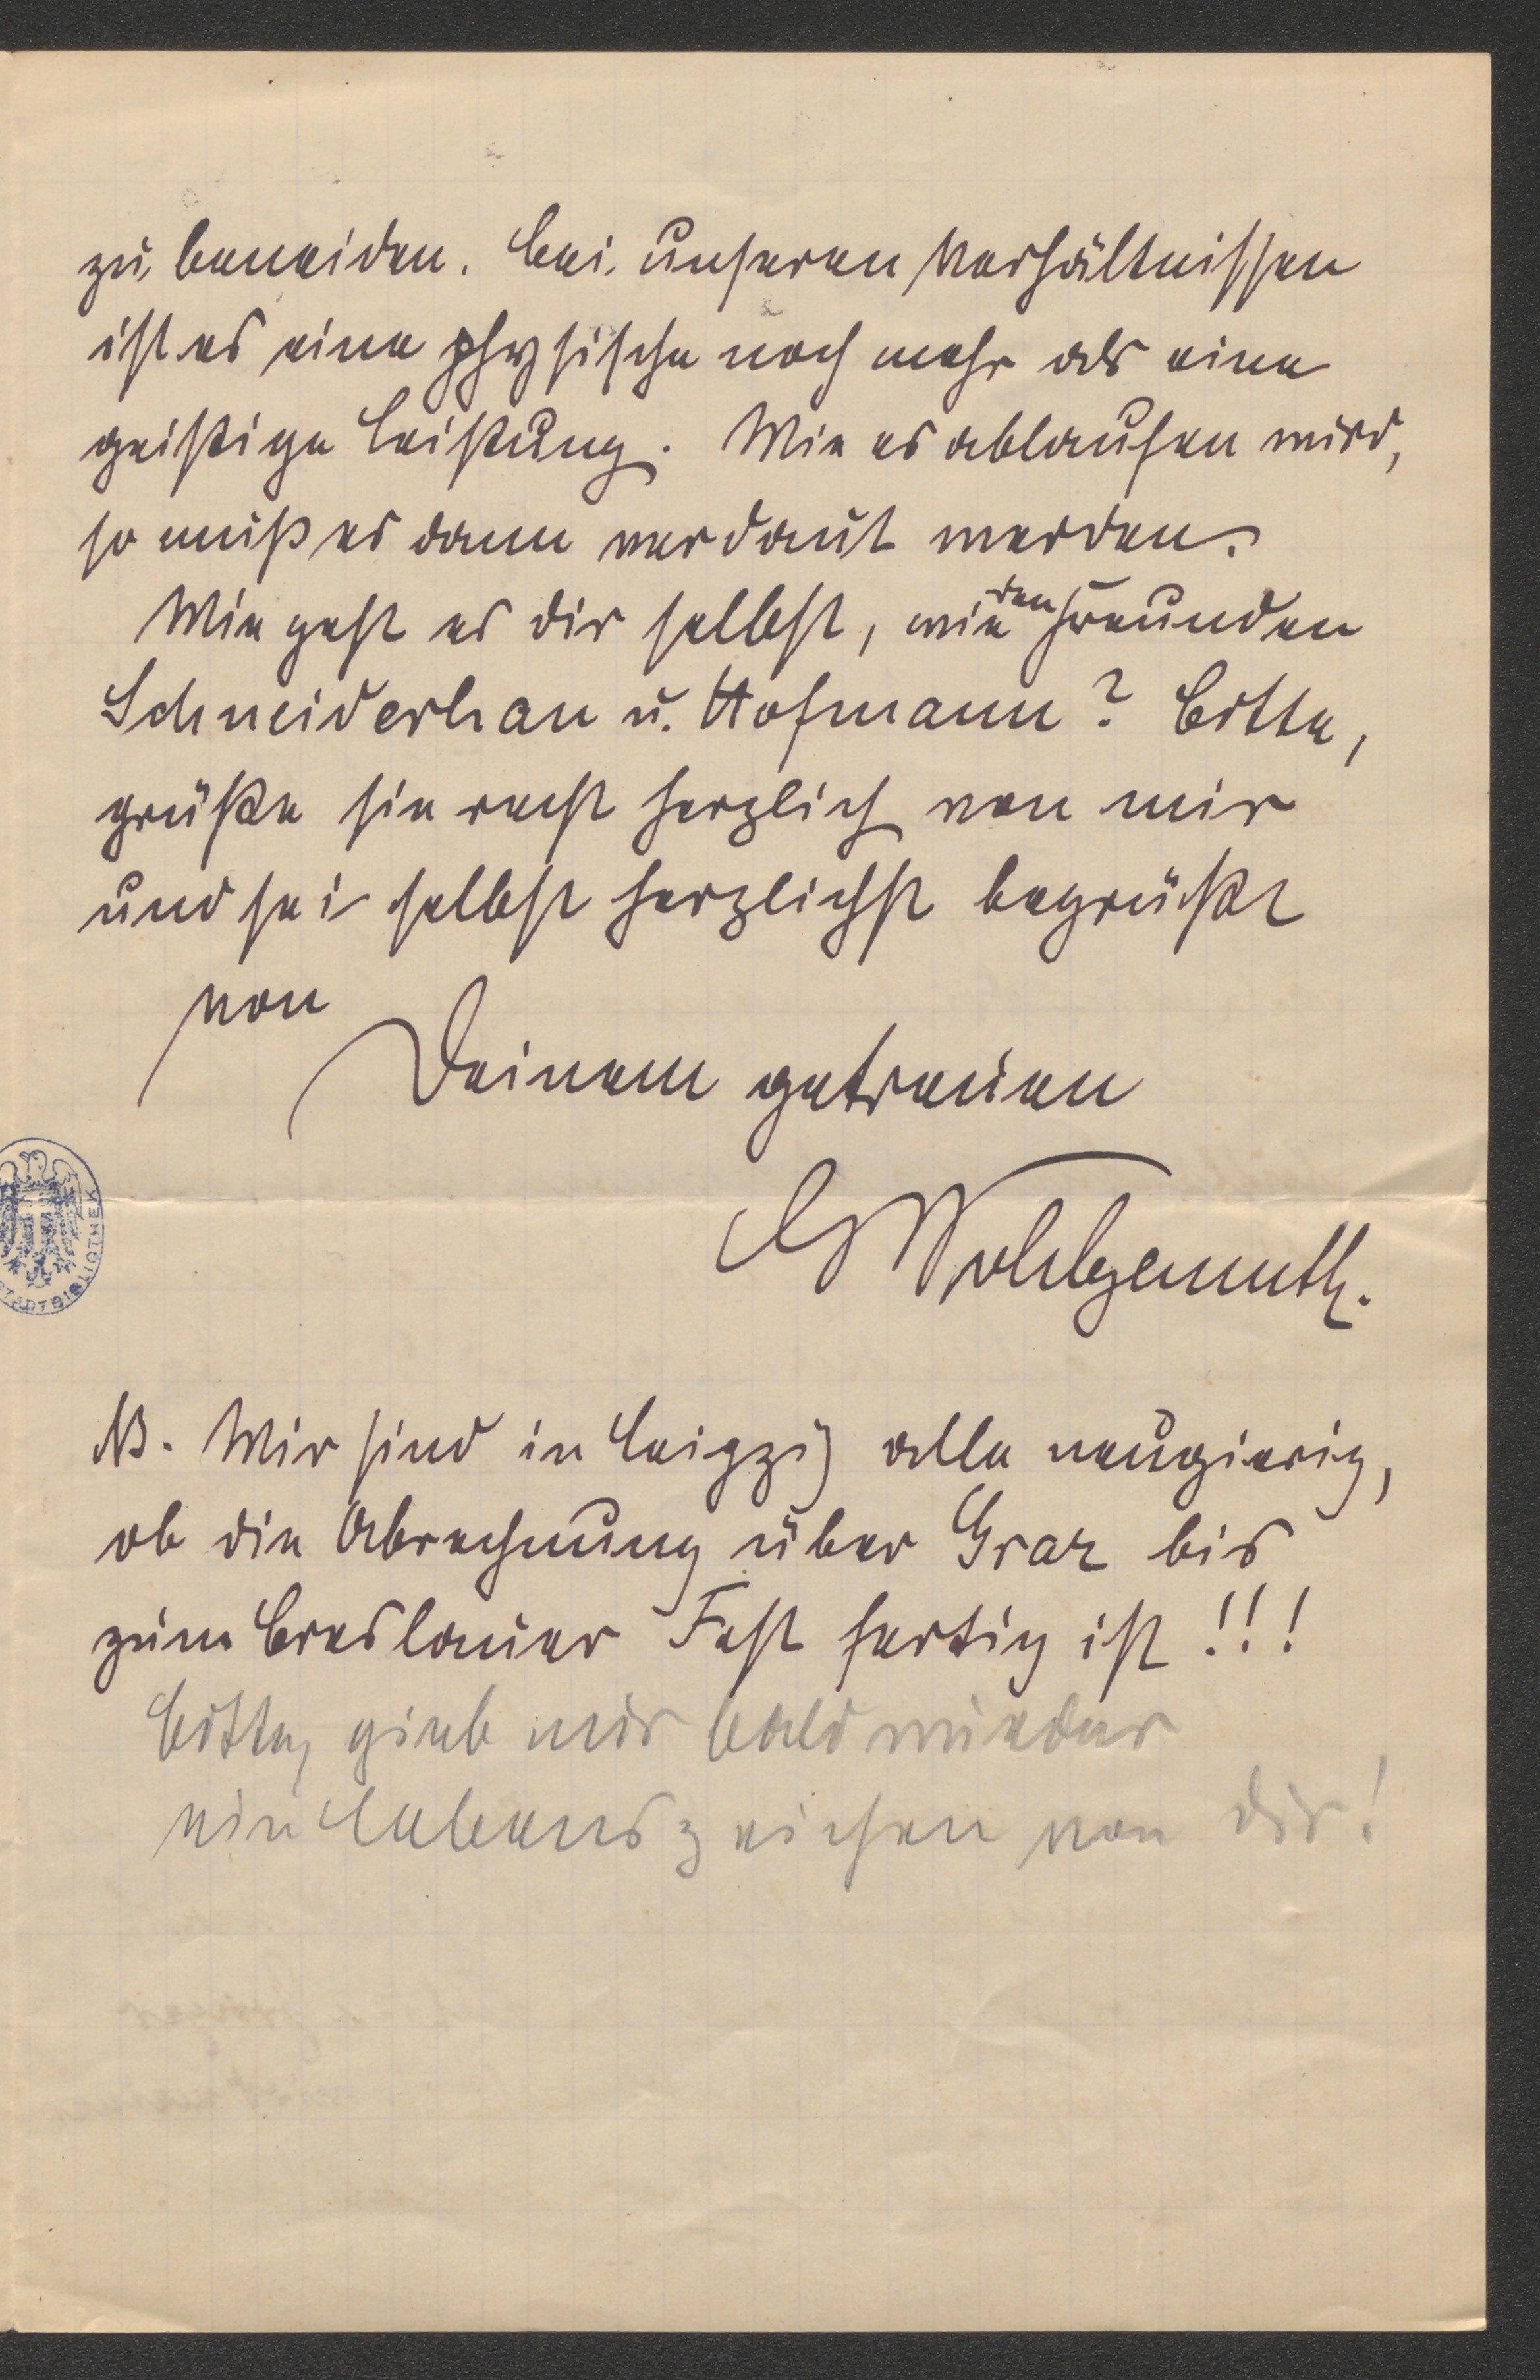 zu beneiden. Bei unseren Verhältnissen
ist es eine physische noch mehr als eine
geistige Leistung. Wie es ablaufen wird,
so muß es dann verdaut werden.
Wie geht es dir selbst, wie den Freunden
Schneiderhan u. Hofmann? Bitte,
grüße sie recht herzlich von mir
und sei selbst herzlichst begrüßt
von
Deinem getreuen
G Wohlgemuth.
NB. Wir sind in Leipzig alle neugierig,
ob die Abrechnung über Graz bis
zum Breslauer Fest fertig ist!!!
Bitte, gieb mir bald wieder
ein Lebenszeichen von dir!
STADTBIBLIOTHEK